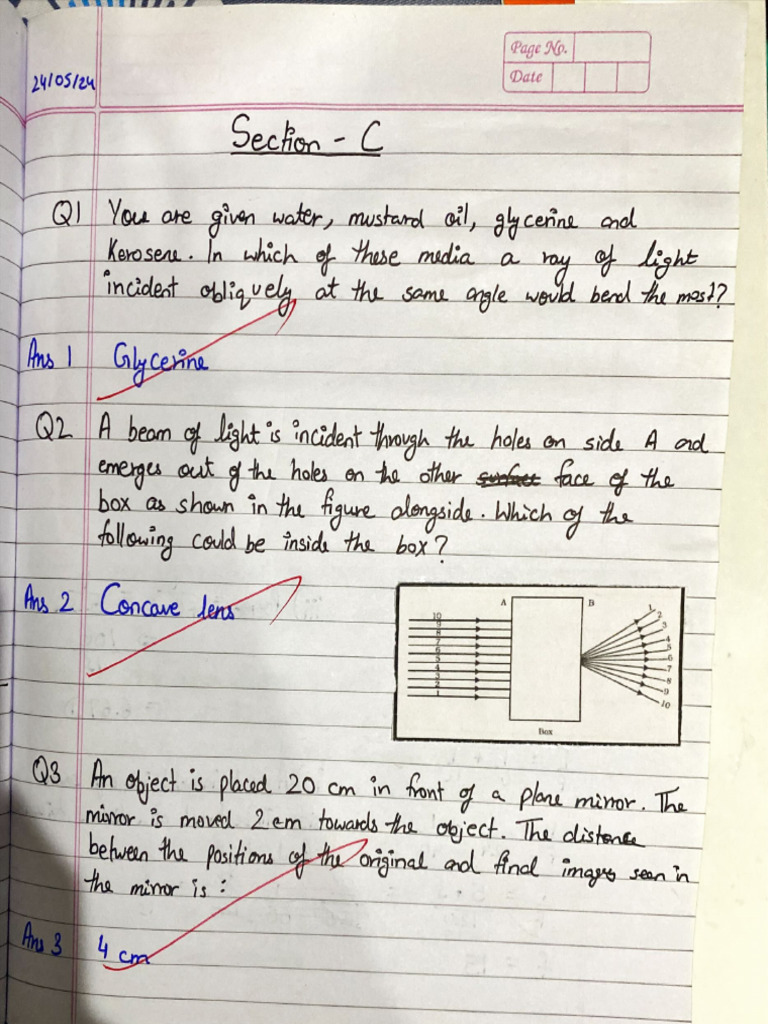 Page No.
Date
24/05/24
Section - C
Q1 You are given water, mustard oil, glycerine and
Kerosene. In which of these media a ray of light
incident obliquely at the same angle would bend the most?
Ans 1 Glycerine
Q2 A beam of light is incident through the holes on side A and
emerges out of the holes on the other surface face of the
box as shown in the figure alongside. Which of the
following could be inside the box?
Ans 2 Concave lens
A B
10
9
8
7
6
5
4
3
2
1
1
2
3
4
5
6
7
8
9
10
Box
Q3 An object is placed 20 cm in front of a plane mirror. The
mirror is moved 2 cm towards the object. The distance
between the positions of the original and final images seen in
the mirror is :
Ans 3 4 cm